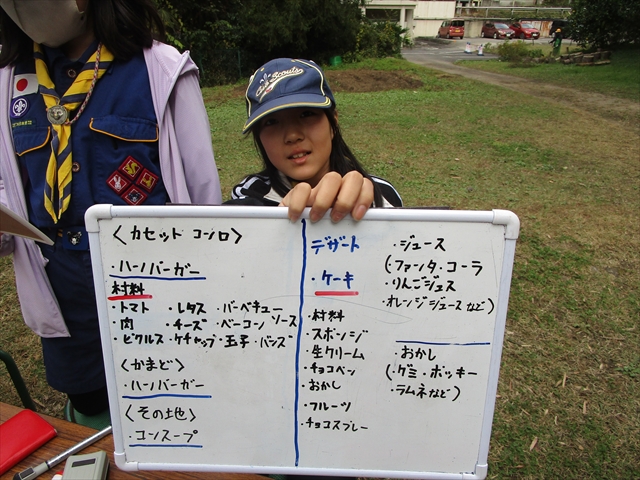 Cub Scouts
〈カセッド コンロ〉
・ハンバーガー
村料
・トマト ・レタス ・バーベキューソース
・肉 ・チーズ ・ベーコン
・ピクルス ・ケチャップ ・玉子 ・バンズ
〈かまど〉
・ハンバーガー
〈その土也〉
・コンスープ
デザート
・ケーキ
・村料
・スポンジ
・生クリーム
・チョコペン
・おかし
・フルーツ
・チョコスプレー
・ジュース
(・ファンタ・コーラ
・りんごジュス
・オレンジジュースなど)
・おかし
(・グミ・ポッキー
・ラムネなど)